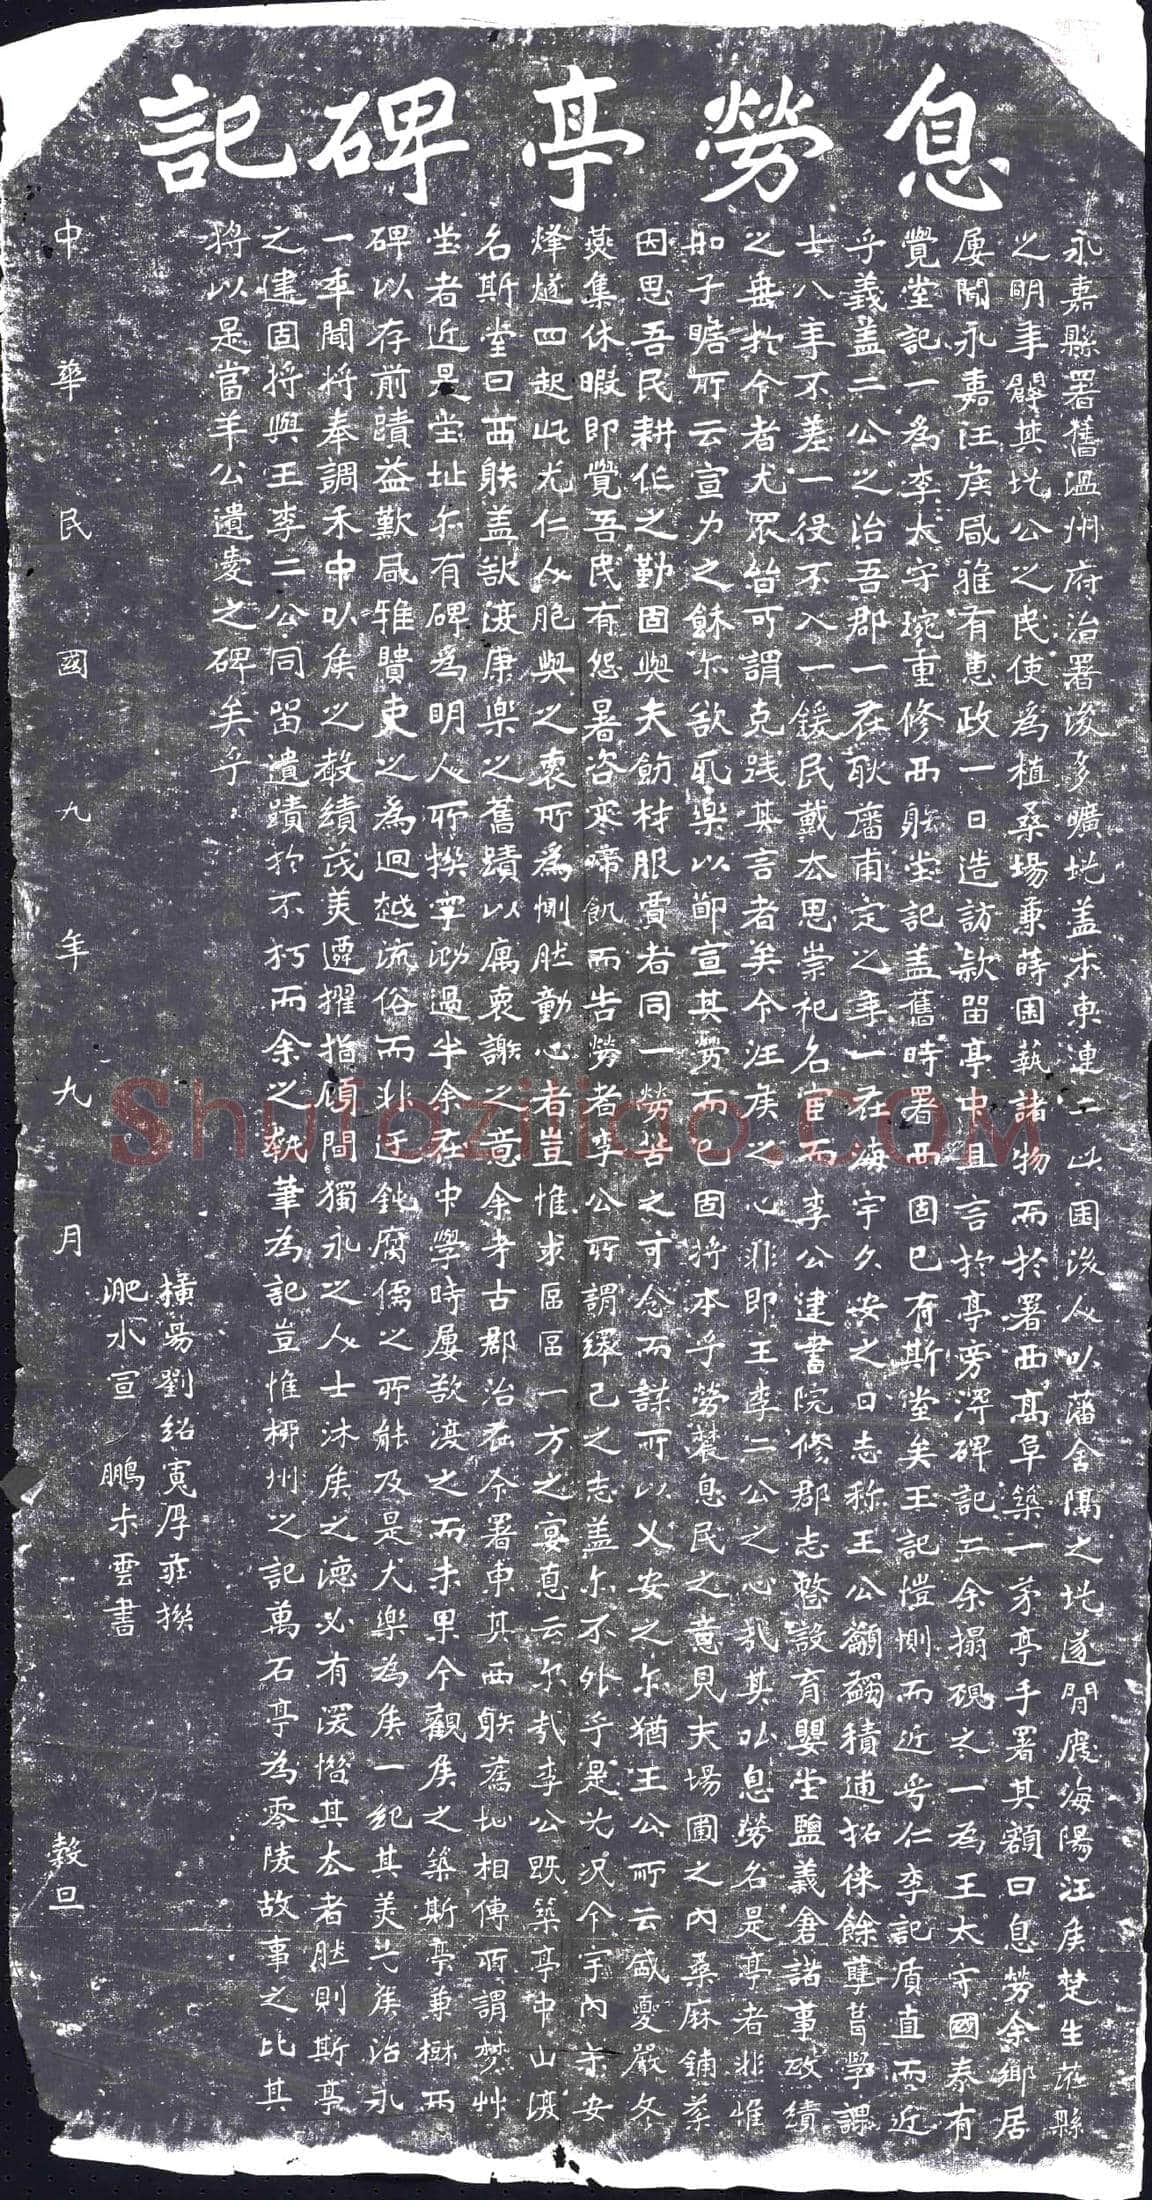 息勞亭碑記
永嘉縣署舊溫州府治署後多曠地蓋本東連二此園後人以藩舍隔之地遂閒廢海陽汪矦楚生莅縣
之明年闢其地公之民使為植桑場兼蒔困蓺諸物而於署西高阜築一茅亭手署其額曰息勞余鄉居
屢聞永嘉汪矦風雅有惠政一日造訪款留亭中且言於亭旁淂碑記二余搨硯之一為王太守國泰有
覺堂記一為李太守琬重修西射堂記蓋舊時署西固已有斯堂矣王記愷惻而近乎仁李記質直而近
乎義蓋二公之治吾郡一在耿藩甫定之年一在海宇久安之日志称王公籲蠲積逋招徠餘孽葺學課
士八年不差一役不入一鍰民戴去思崇祀名宦而李公建書院修郡志整設育嬰堂鹽義倉諸事政績
之垂於今者尤眾皆可謂克踐其言者矣今汪矦之心非即王李二公之心哉其以息勞名是亭者非惟
如子瞻所云宣力之餘尔欲取樂以節宣其勞而已固將本乎勞農息民之意見夫場圃之內桑麻鋪棻
因思吾民耕作之勤固與夫飭材服賈者同一勞苦之可念而謀所以乂安之尔猶王公所云盛夏嚴冬
燕集休暇即覺吾民有怨暑咨寒啼飢而告勞者李公所謂繹己之志蓋尔不外乎是尤况今宇內未安
烽燧四起此尤仁人胞與之衷所為惻然動心者豈惟求區區一方之宴息云尔哉李公既築亭中山復
名斯堂曰西射蓋欲復康樂之舊蹟以寓衷謝之意余考古郡治在今署東其西射舊地相傳所謂夢艸
堂者近是堂址尔有碑為明人所撰字泐過半余在中學時屢欲复之而未果今觀矦之築斯亭兼樹两
碑以存前蹟益歎風雅賢吏之為迥越流俗而非迂鈍腐儒之所能及是大樂為矦一紀其美尤矦治永
一年聞將奉調禾中以矦之㪇績茂美遷擢指顧間獨永之人士沐矦之德必有湲惜其去者然則斯亭
之建固將與王李二公同留遺蹟於不朽而余之執筆為記豈惟柳州之記萬石亭為零陵故事之比其
將以是當羊公遺愛之碑矣乎
橫陽劉紹寬厚莊撰
淝水宣鵬未雲書
中華民國九年九月穀旦
Shufaziliao.COM